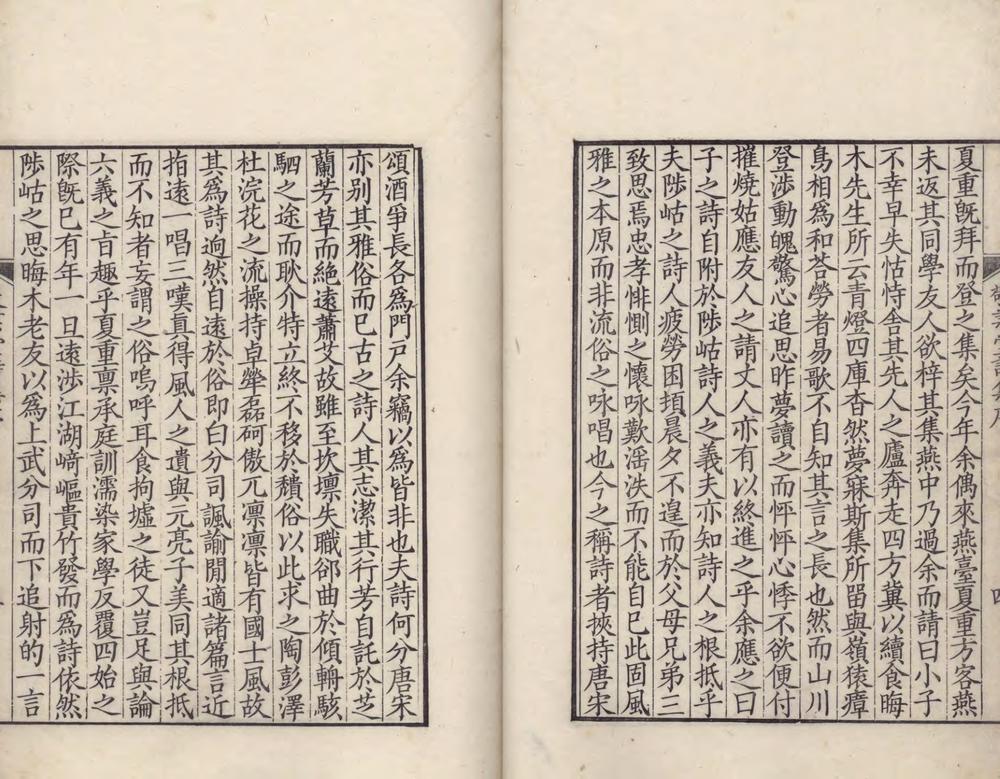 夏重旣拜而登之集矣今年余偶來燕臺夏重方客燕
未返其同學友人欲梓其集燕中乃過余而請曰小子
不幸早失怙恃舍其先人之廬奔走四方冀以續食晦
木先生所云青燈四庫杳然夢寐斯集所畱與嶺猿瘴
鳥相爲和荅勞者易歌不自知其言之長也然而山川
登涉動魄驚心追思昨夢讀之而怦怦心悸不欲便付
摧燒姑應友人之請丈人亦有以終進之乎余應之曰
子之詩自附於陟岵詩人之義夫亦知詩人之根抵乎
夫陟岵之詩人疲勞困頓晨夕不遑而於父母兄弟三
致思焉忠孝悱惻之懷咏歎滛泆而不能自已此固風
雅之本原而非流俗之咏唱也今之稱詩者挾持唐宋
頌酒爭長各爲門戸余竊以爲皆非也夫詩何分唐宋
亦别其雅俗而已古之詩人其志潔其行芳自託於芝
蘭芳草而絶遠蕭艾故雖至坎壈失職郤曲於傾輈駭
駟之途而耿介特立終不移於穨俗以此求之陶彭澤
杜浣花之流操持卓犖磊砢傲兀凛凛皆有國士風故
其爲詩逈然自遠於俗即白分司諷諭閒適諸篇言近
指遠一唱三嘆真得風人之遺與元亮子美同其根抵
而不知者妄謂之俗嗚呼耳食拘墟之徒又豈足與論
六義之㫖趣乎夏重禀承庭訓濡染家學反覆四始之
際旣已有年一旦遠涉江湖﨑嶇貴竹發而爲詩依然
陟岵之思晦木老友以爲上武分司而下追射的一言